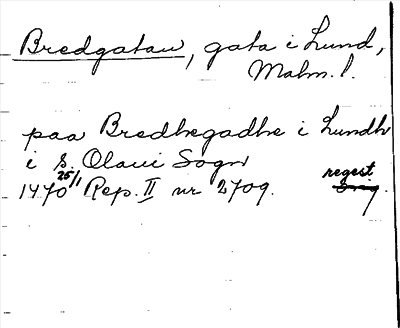 Bredgatan, gata i Lund,
Malm. l.
paa Bredhegadhe i Lundh
i S. Olaui Sogn
1470 25/1 Rep. II nr 2709. regest